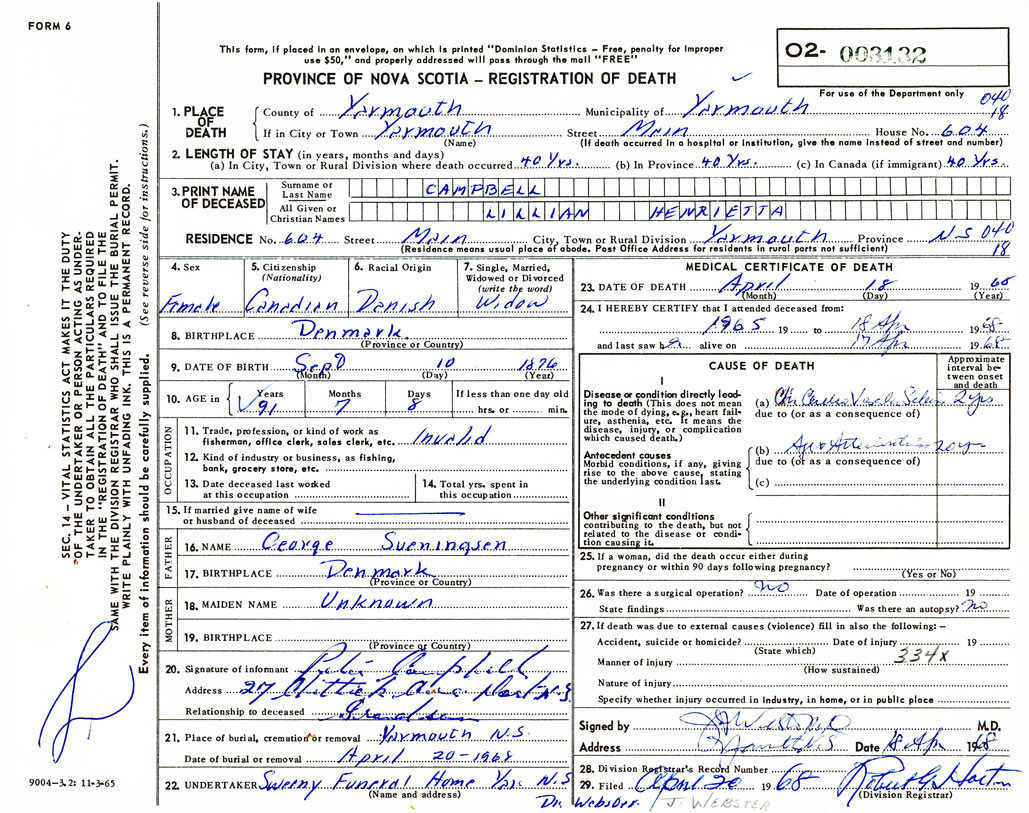 FORM 6
This form, if placed in an envelope, on which is printed "Dominion Statistics – Free, penalty for improper
use $50," and properly addressed will pass through the mail "FREE"
PROVINCE OF NOVA SCOTIA – REGISTRATION OF DEATH
O2- 003132
For use of the Department only
040
18
1. PLACE OF DEATH
County of Yarmouth Municipality of Yarmouth
If in City or Town Yarmouth Street Main House No. 604
(Name) (If death occurred in a hospital or institution, give the name instead of street and number)
2. LENGTH OF STAY (in years, months and days)
(a) In City, Town or Rural Division where death occurred 40 Yrs. (b) In Province 40 Yrs. (c) In Canada (if immigrant) 40 Yrs
3. PRINT NAME OF DECEASED
Surname or Last Name CAMPBELL
All Given or Christian Names LILLIAN HENRIETTA
RESIDENCE No. 604 Street Main City, Town or Rural Division Yarmouth Province N.S 040
(Residence means usual place of abode. Post Office Address for residents in rural parts not sufficient) 18
4. Sex Female
5. Citizenship (Nationality) Canadian
6. Racial Origin Danish
7. Single, Married, Widowed or Divorced (write the word) Widow
8. BIRTHPLACE Denmark.
(Province or Country)
9. DATE OF BIRTH Sept 10 1876
(Month) (Day) (Year)
10. AGE in Years Months Days If less than one day old
91 7 8 hrs. or min.
OCCUPATION
11. Trade, profession, or kind of work as
fisherman, office clerk, sales clerk, etc. Invalid
12. Kind of industry or business, as fishing,
bank, grocery store, etc.
13. Date deceased last worked
at this occupation
14. Total yrs. spent in
this occupation
15. If married give name of wife
or husband of deceased
FATHER
16. NAME George Sueningsen
17. BIRTHPLACE Denmark
(Province or Country)
MOTHER
18. MAIDEN NAME Unknown
19. BIRTHPLACE
(Province or Country)
20. Signature of informant Campbell
Address 27 N.S
Relationship to deceased Grandson
21. Place of burial, cremation or removal Yarmouth N.S.
Date of burial or removal April 20-1968
22. UNDERTAKER Sweeny Funeral Home Yar. N.S
(Name and address)
MEDICAL CERTIFICATE OF DEATH
23. DATE OF DEATH April 18 1968
(Month) (Day) (Year)
24. I HEREBY CERTIFY that I attended deceased from:
1965 19 to 18 Apr 1968
and last saw her alive on 17 Apr 1968
CAUSE OF DEATH
Approximate interval between onset and death
I
Disease or condition directly leading to death (This does not mean
the mode of dying, e.g., heart failure, asthenia, etc. It means the
disease, injury, or complication
which caused death.)
(a) 2 yrs
due to (or as a consequence of)
Antecedent causes
Morbid conditions, if any, giving
rise to the above cause, stating
the underlying condition last.
(b) 20 yrs
due to (or as a consequence of)
(c)
II
Other significant conditions
contributing to the death, but not
related to the disease or condition causing it.
25. If a woman, did the death occur either during
pregnancy or within 90 days following pregnancy?
(Yes or No)
26. Was there a surgical operation? No Date of operation 19
State findings Was there an autopsy? No
27. If death was due to external causes (violence) fill in also the following: –
Accident, suicide or homicide? Date of injury 19
(State which)
334x
Manner of injury
(How sustained)
Nature of injury
Specify whether injury occurred in industry, in home, or in public place
Signed by M.D.
Address Yarmouth, N.S Date 18 Apr 1968
28. Division Registrar's Record Number
29. Filed April 20 1968
(Division Registrar)
Dr. Webster. J. WEBSTER
SEC. 14 – VITAL STATISTICS ACT MAKES IT THE DUTY
OF THE UNDERTAKER OR PERSON ACTING AS UNDERTAKER TO OBTAIN ALL THE PARTICULARS REQUIRED
IN THE "REGISTRATION OF DEATH" AND TO FILE THE
SAME WITH THE DIVISION REGISTRAR WHO SHALL ISSUE THE BURIAL PERMIT.
WRITE PLAINLY WITH UNFADING INK. THIS IS A PERMANENT RECORD.
Every item of information should be carefully supplied. (See reverse side for instructions.)
9004–3.2: 11-3-65